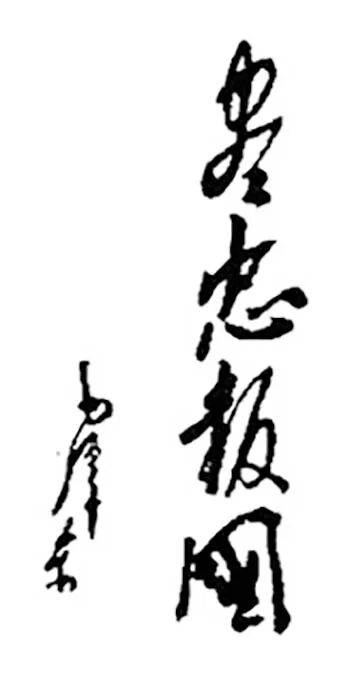 尽忠报國
毛泽东